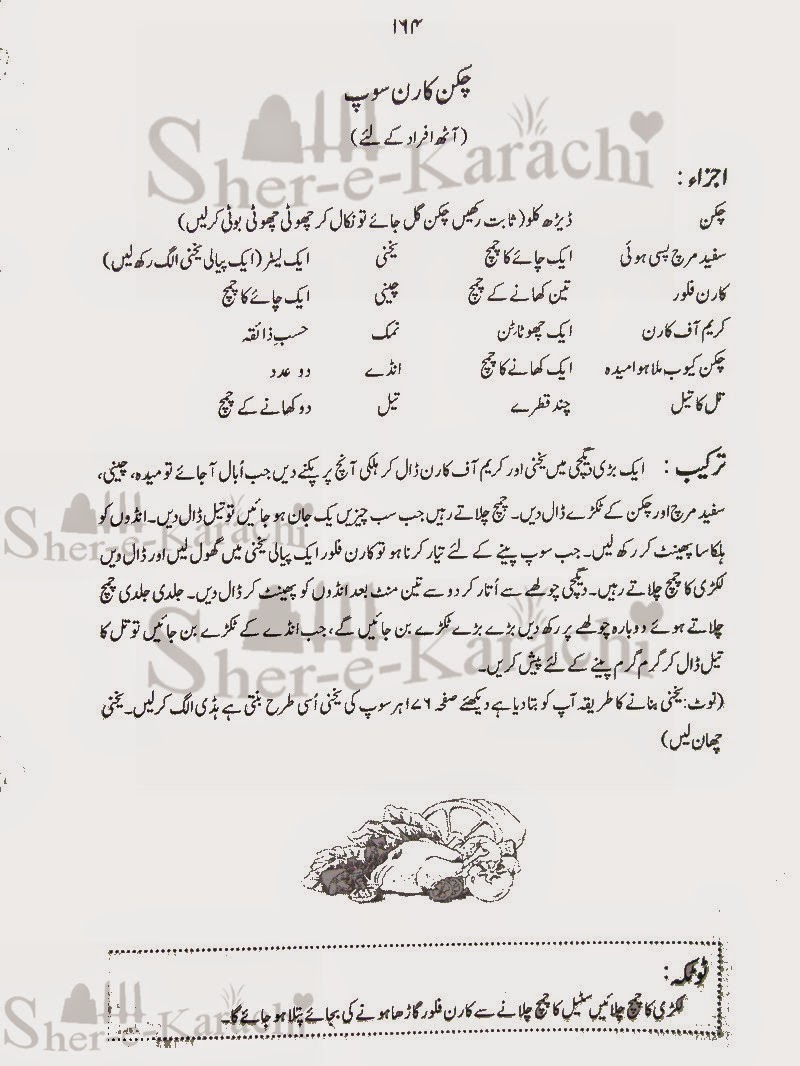 ۱۶۴
چکن کارن سوپ
(آٹھ افراد کے لئے)
اجزاء:
چکن ڈیڑھ کلو (ثابت رکھیں چکن گل جائے تو نکال کر چھوٹی چھوٹی بوٹی کرلیں)
سفید مرچ پسی ہوئی ایک چائے کا چمچ یخنی ایک لیٹر (ایک پیالی یخنی الگ رکھ لیں)
کارن فلور تین کھانے کے چمچ چینی ایک چائے کا چمچ
کریم آف کارن ایک چھوٹا ٹن نمک حسبِ ذائقہ
چکن کیوب ملا ہوا میدہ ایک کھانے کا چمچ انڈے دو عدد
تل کا تیل چند قطرے تیل دو کھانے کے چمچ
ترکیب: ایک بڑی دیگچی میں یخنی اور کریم آف کارن ڈال کر ہلکی آنچ پر پکنے دیں جب اُبال آجائے تو میدہ، چینی،
سفید مرچ اور چکن کے ٹکڑے ڈال دیں۔ چمچ چلاتے رہیں جب سب چیزیں یک جان ہو جائیں تو تیل ڈال دیں۔ انڈوں کو
ہلکا سا پھینٹ کر رکھ لیں۔ جب سوپ پینے کے لئے تیار کرنا ہو تو کارن فلور ایک پیالی یخنی میں گھول لیں اور ڈال دیں
لکڑی کا چمچ چلاتے رہیں۔ دیگچی چولھے سے اُتار کر دو سے تین منٹ بعد انڈوں کو پھینٹ کر ڈال دیں۔ جلدی جلدی چمچ
چلاتے ہوئے دوبارہ چولھے پر رکھ دیں بڑے بڑے ٹکڑے بن جائیں گے، جب انڈے کے ٹکڑے بن جائیں تو تل کا
تیل ڈال کر گرم گرم پینے کے لئے پیش کریں۔
(نوٹ: یخنی بنانے کا طریقہ آپ کو بتا دیا ہے دیکھئے صفحہ ۱۷۶ ہر سوپ کی یخنی اُسی طرح بنتی ہے ہڈی الگ کرلیں۔ یخنی
چھان لیں)
ٹوٹکہ:
لکڑی کا چمچ چلائیں سٹیل کا چمچ چلانے سے کارن فلور گاڑھا ہونے کی بجائے پتلا ہو جائے گا۔
Sher-e-Karachi
Sher-e-Karachi
Sher-e-Karachi
Sher-e-Karachi